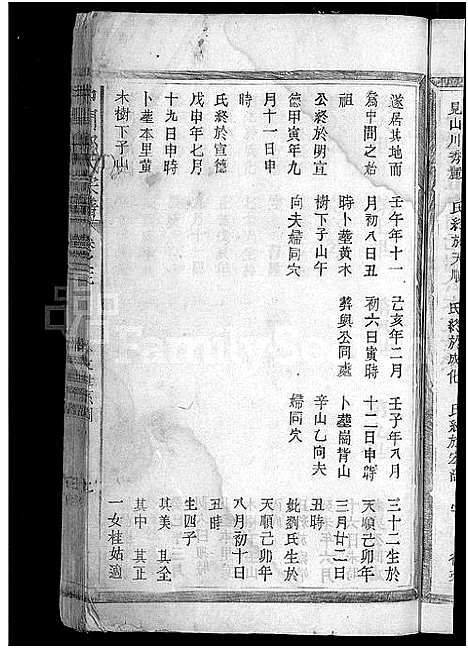 見山川秀麗
氏終於天順
氏終於成化
遂居其地而
為中間之始
祖
公終於明宣
德甲寅年九
月十一日申
時
氏終於宣德
戊申年七月
十九日申時
卜塟本里黄
木樹下子山
壬午年十一
月初八日丑
時卜塟黄木
樹下子山午
向夫婦同穴
己亥年二月
初六日寅時
葬與公同處
壬子年八月
十二日申時
卜塟崗背山
辛山乙向夫
婦同穴
三十二生於
天順己卯年
三月廿二日
丑時
妣劉氏生於
天順己卯年
八月初十日
丑時
生四子
其美 其全
其中 其正
一女桂姑適